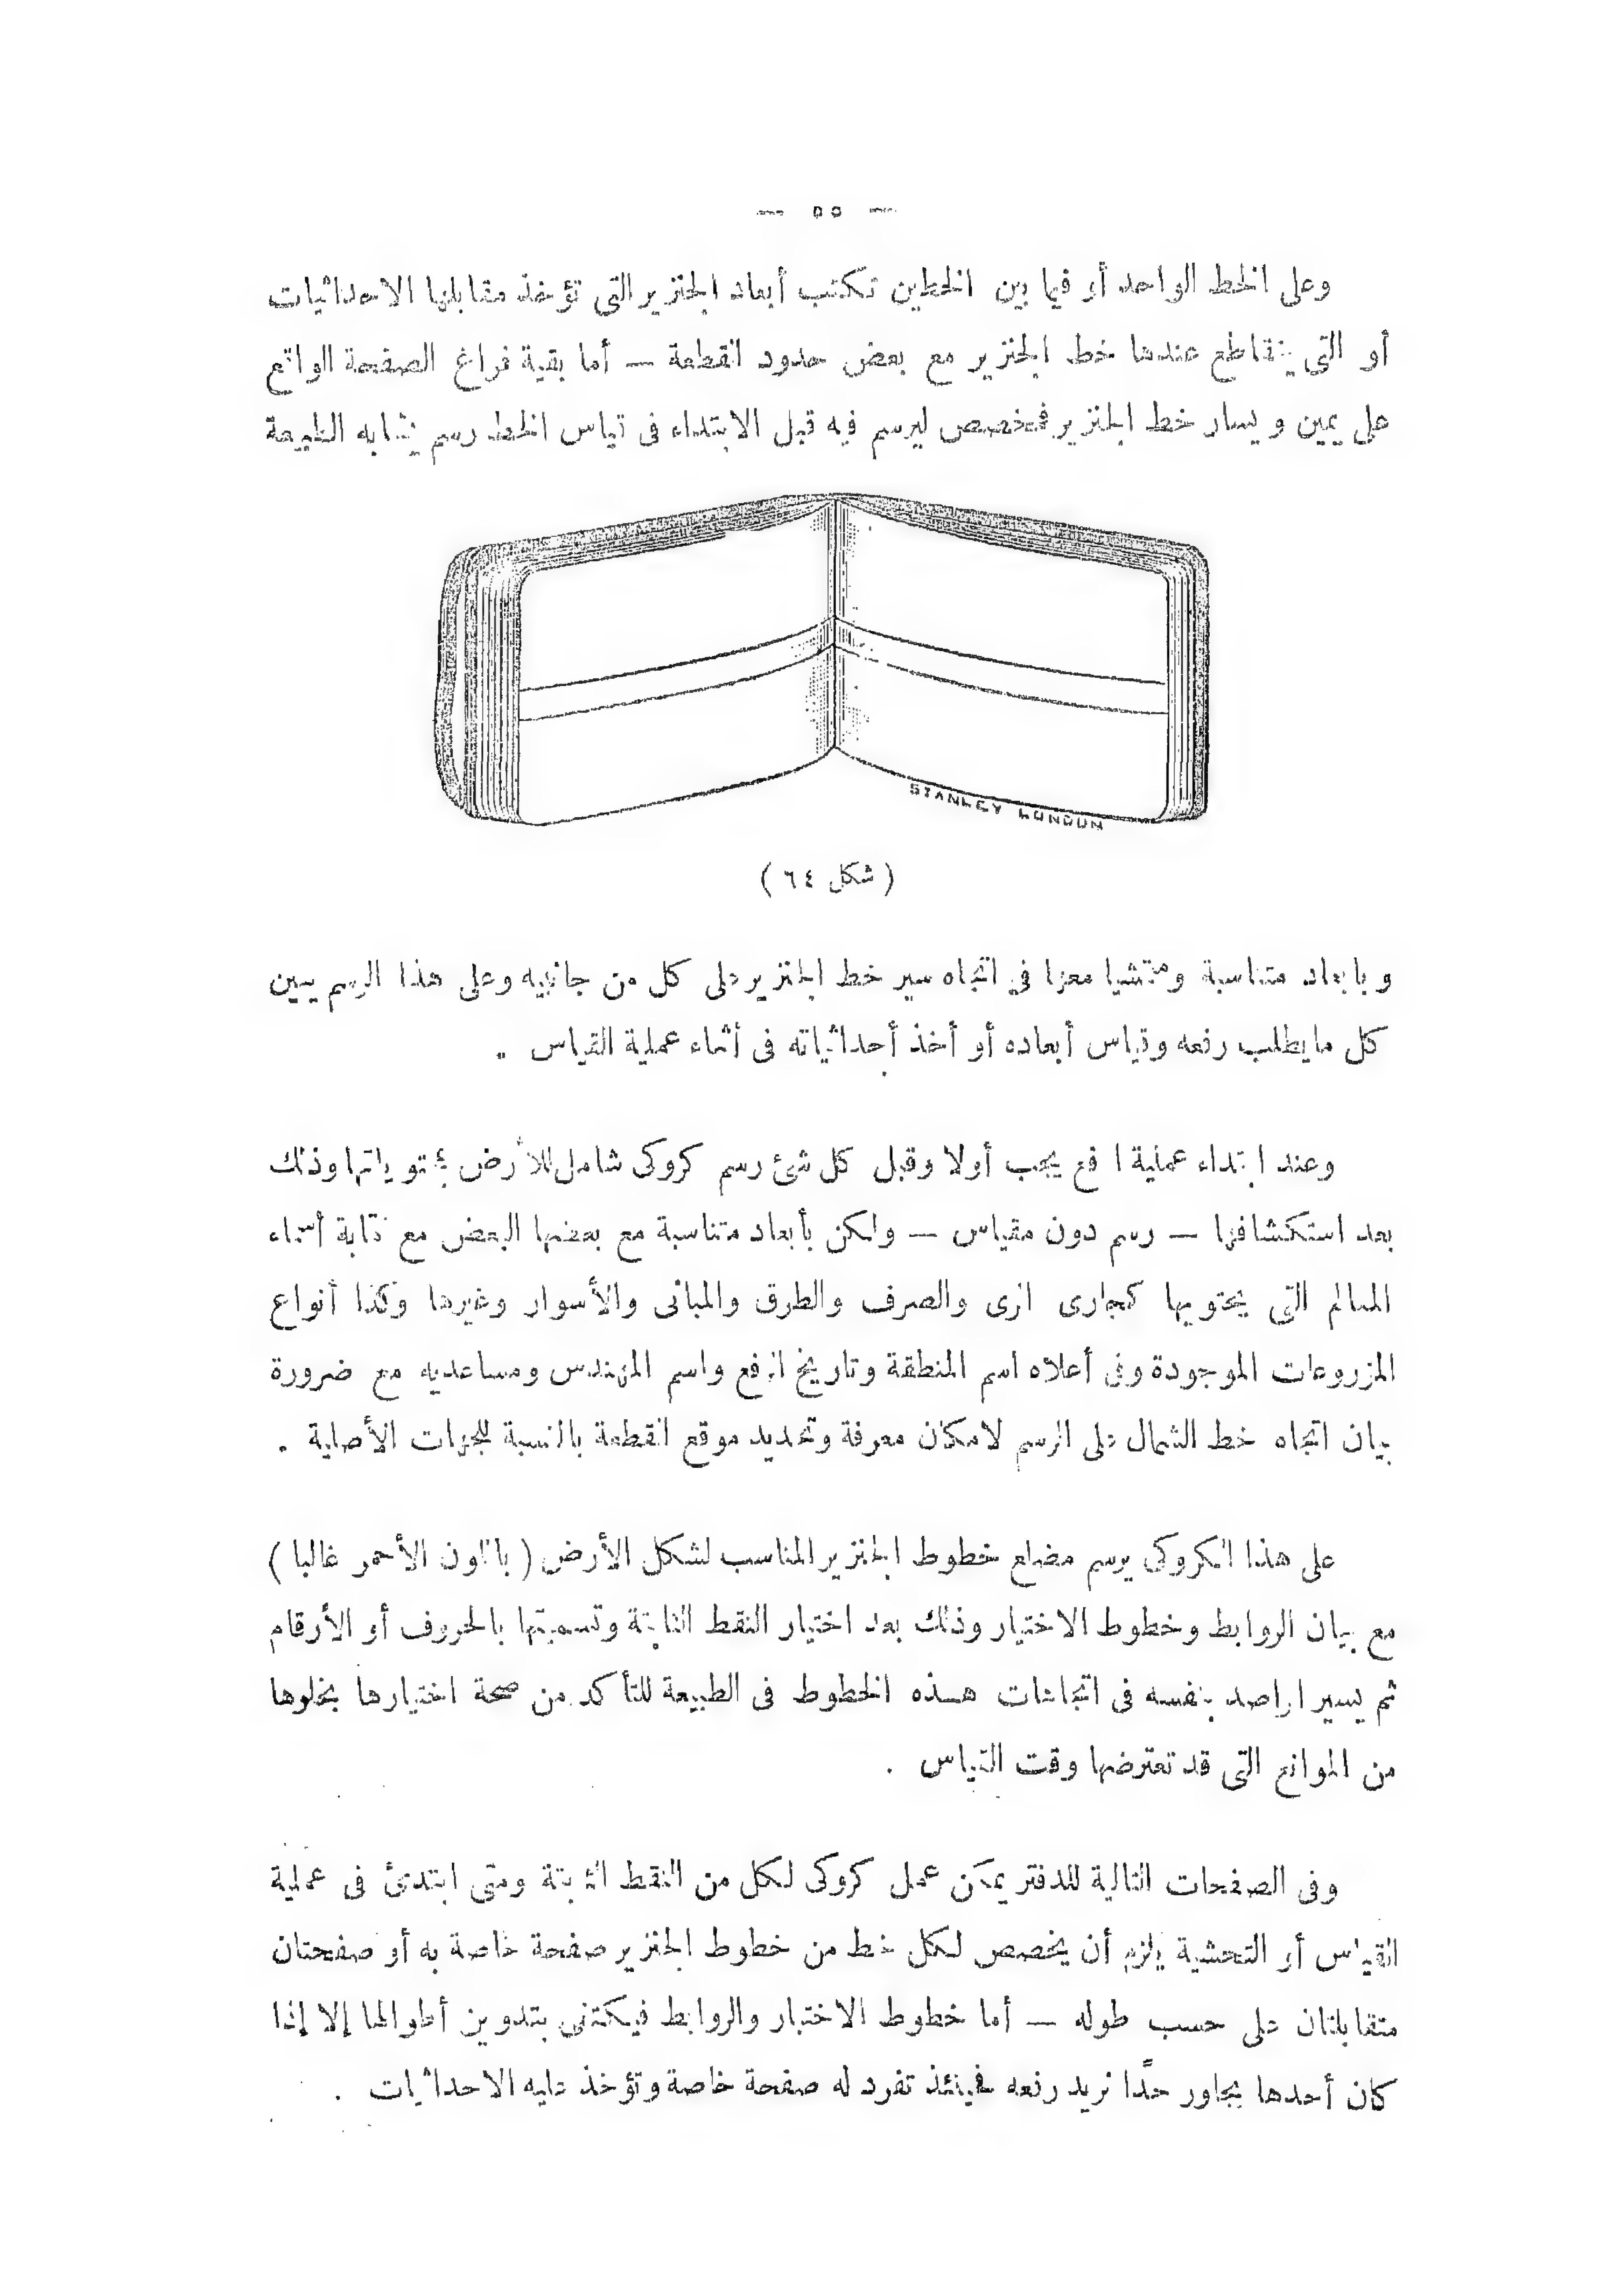 — ٥٥ —
وعلى الخط الواحد أو فيما بين الخطين تكتب أبعاد الجنزير التى تؤخذ مقابلها الاحداثيات
أو التى يتقاطع عندها خط الجنزير مع بعض حدود القطعة — أما بقية فراغ الصفحة الواقع
على يمين ويسار خط الجنزير فمخصص ليرسم فيه قبل الابتداء فى قياس الخط رسم يشابه الطبيعة
STANLEY LONDON
( شكل ٦٤ )
وبابعاد متناسبة ومتمشيا معها فى اتجاه سير خط الجنزير على كل من جانبيه وعلى هذا الرسم يبين
كل مايطلب رفعه وقياس أبعاده أو أخذ أحداثياته فى أثناء عملية القياس .
وعند ابتداء عملية الرفع يجب أولا وقبل كل شئ رسم كروكى شامل للأرض بمحتوياتها وذلك
بعد استكشافها — رسم دون مقياس — ولكن بأبعاد متناسبة مع بعضها البعض مع كتابة أسماء
المعالم التى يحتويها كمجارى الرى والصرف والطرق والمبانى والأسوار وغيرها وكذا أنواع
المزروعات الموجودة وفى أعلاه اسم المنطقة وتاريخ الرفع واسم المهندس ومساعديه مع ضرورة
بيان اتجاه خط الشمال على الرسم لامكان معرفة وتحديد موقع القطعة بالنسبة للجهات الأصلية .
على هذا الكروكى يرسم مضلع خطوط الجنزير المناسب لشكل الأرض ( باللون الأحمر غالبا )
مع بيان الروابط وخطوط الاختيار وذلك بعد اختيار النقط الثابتة وتسميتها بالحروف أو الأرقام
ثم يسير الراصد بنفسه فى اتجاهات هذه الخطوط فى الطبيعة للتأكد من صحة اختيارها بخلوها
من الموانع التى قد تعترضها وقت القياس .
وفى الصفحات التالية للدفتر يمكن عمل كروكى لكل من النقط الثابتة ومتى ابتدئ فى عملية
القياس أو التحشية يلزم أن يخصص لكل خط من خطوط الجنزير صفحة خاصة به أو صفحتان
متقابلتان على حسب طوله — أما خطوط الاختبار والروابط فيكتفى بتدوين أطوالها إلا إذا
كان أحدها يجاور حدًا نريد رفعه فحينئذ تفرد له صفحة خاصة وتؤخذ عليه الاحداثيات .